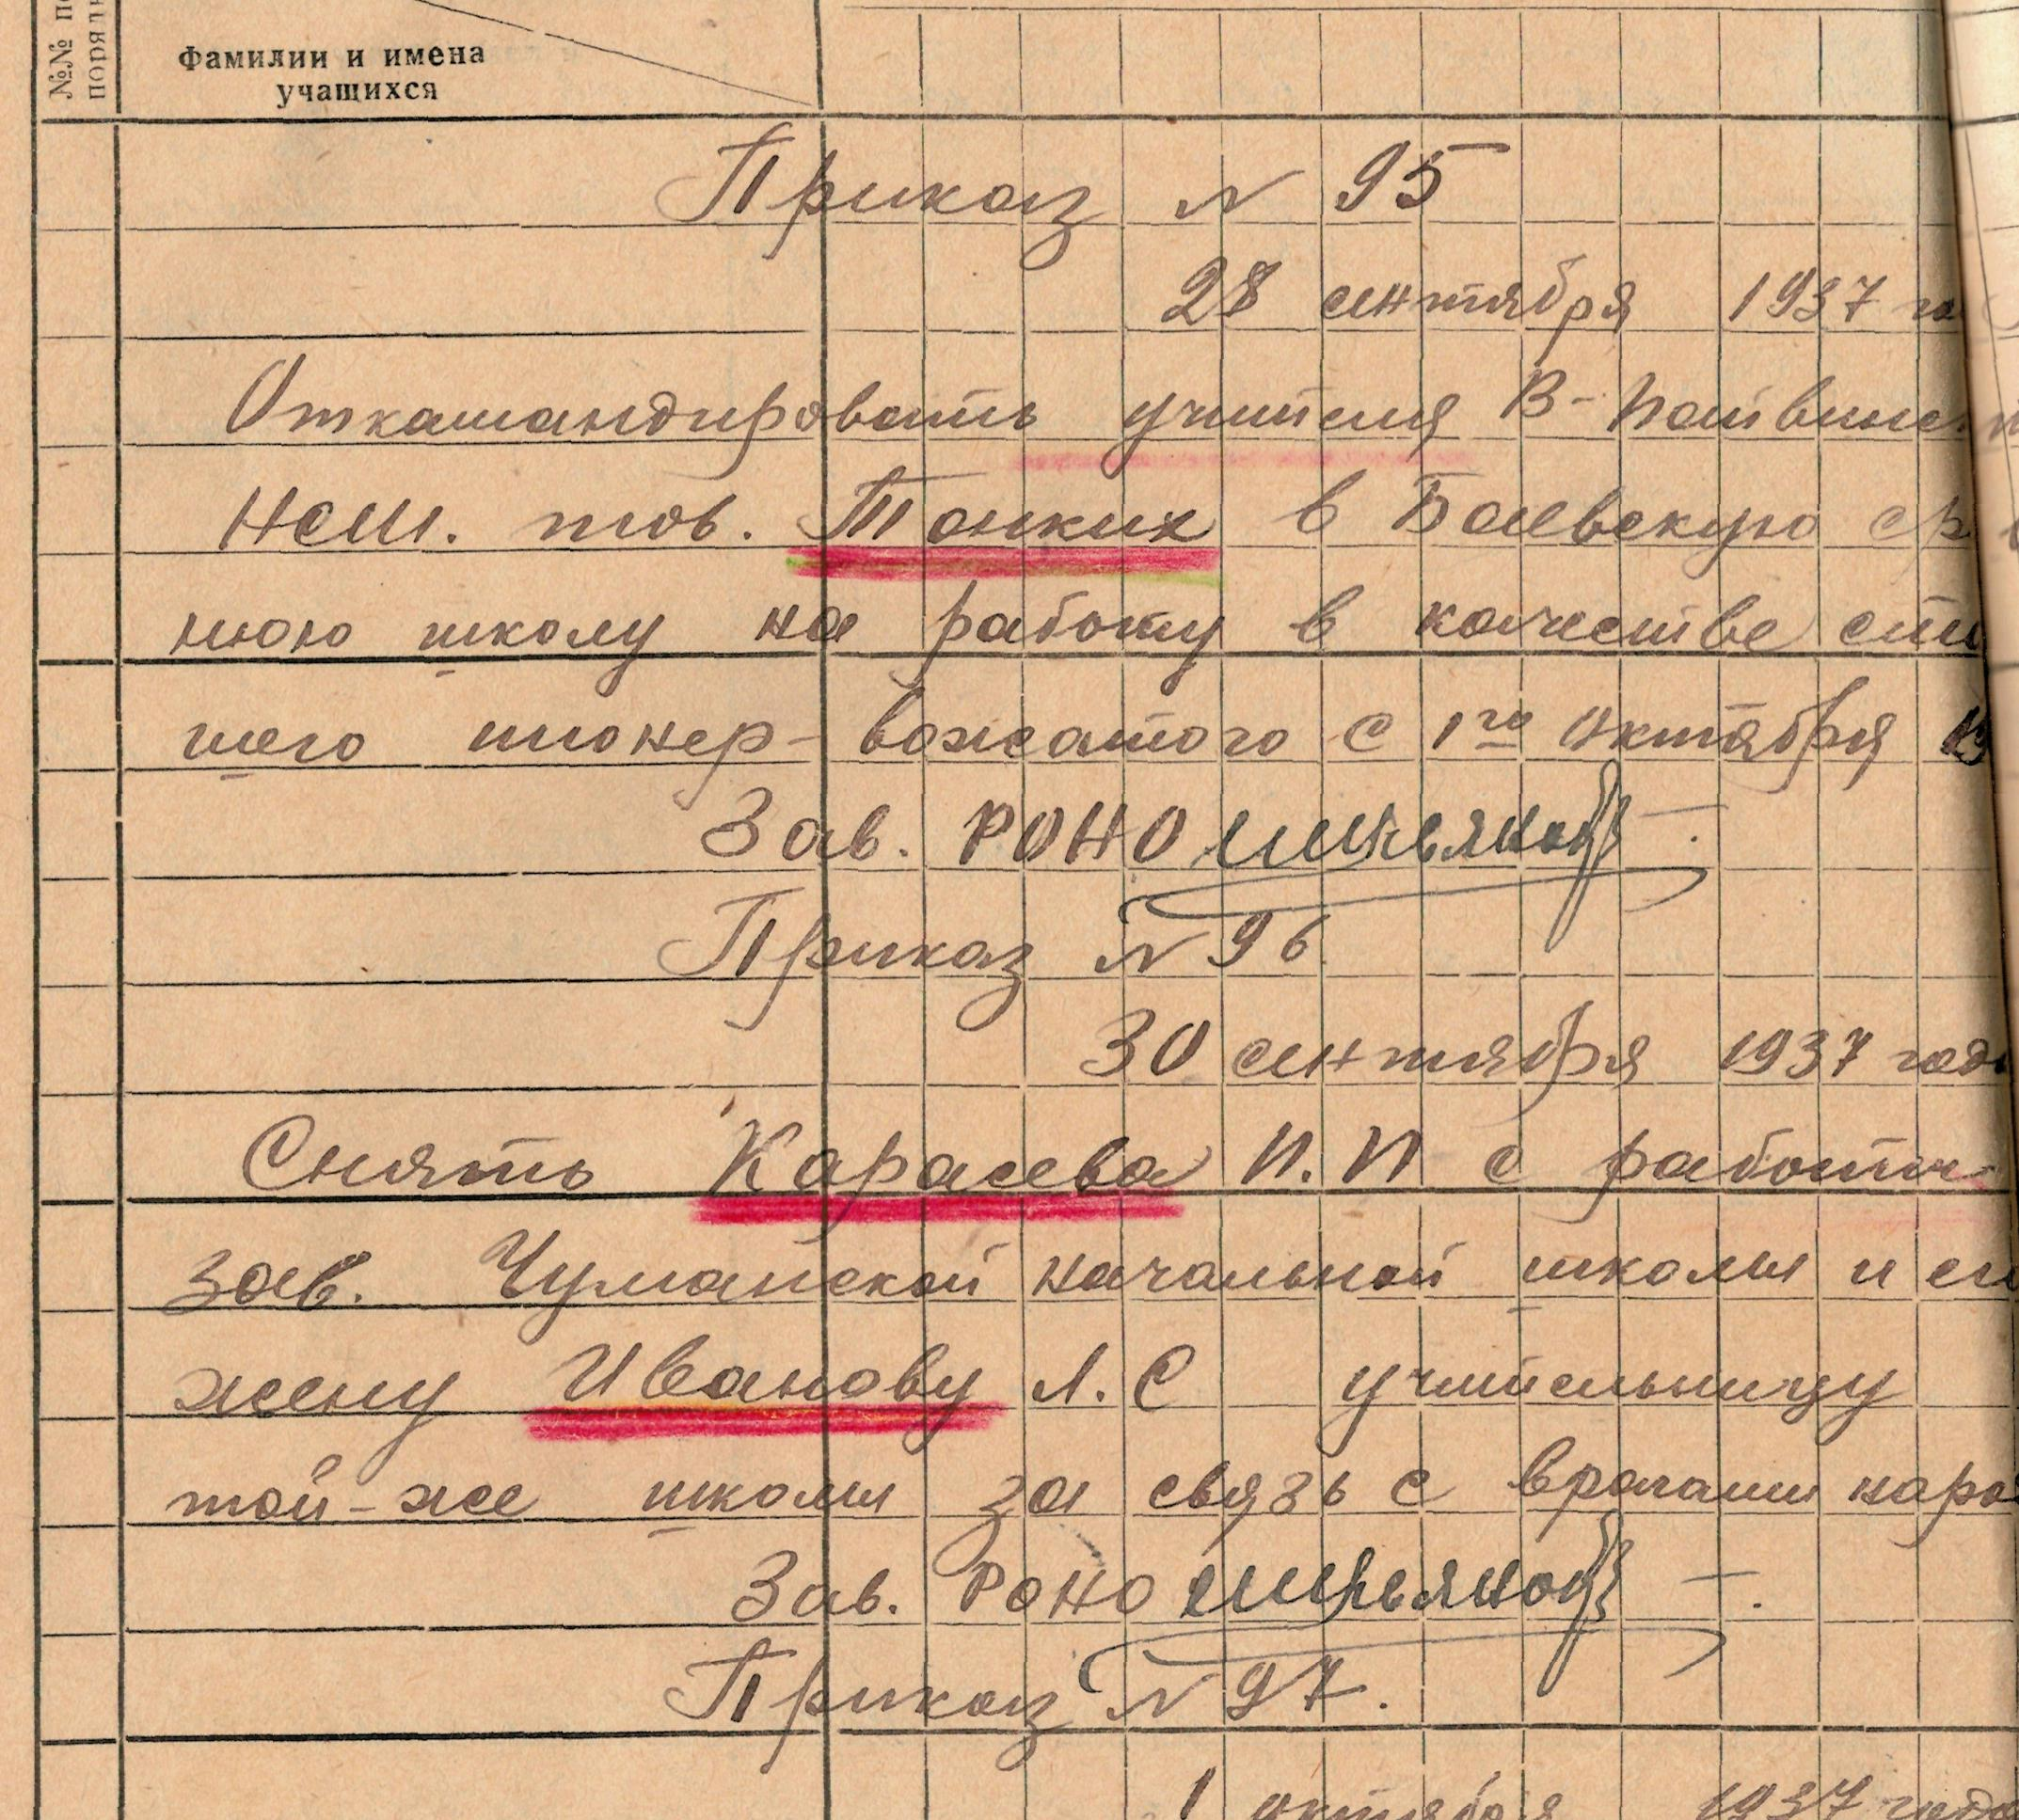 №№ по
порядк
Фамилии и имена
учащихся
Приказ N 95
28 сентября 1937 го
Откамандировать учителя В-Пайвинск
НСШ. тов. Тонких в Баевскую ср
нюю школу на работу в качестве ста
шего пионер-вожатого с 1го Октября 19
Зав. РОНО
Приказ N 96
30 сентября 1937 года
Снять Карасева П.П с работы
зав. Чуманской начальной школы и его
жену Иванову Л.С учительницу
той-же школы за связь с врагами наро
Зав. РОНО
Приказ N 97.
1 октября 1937 года